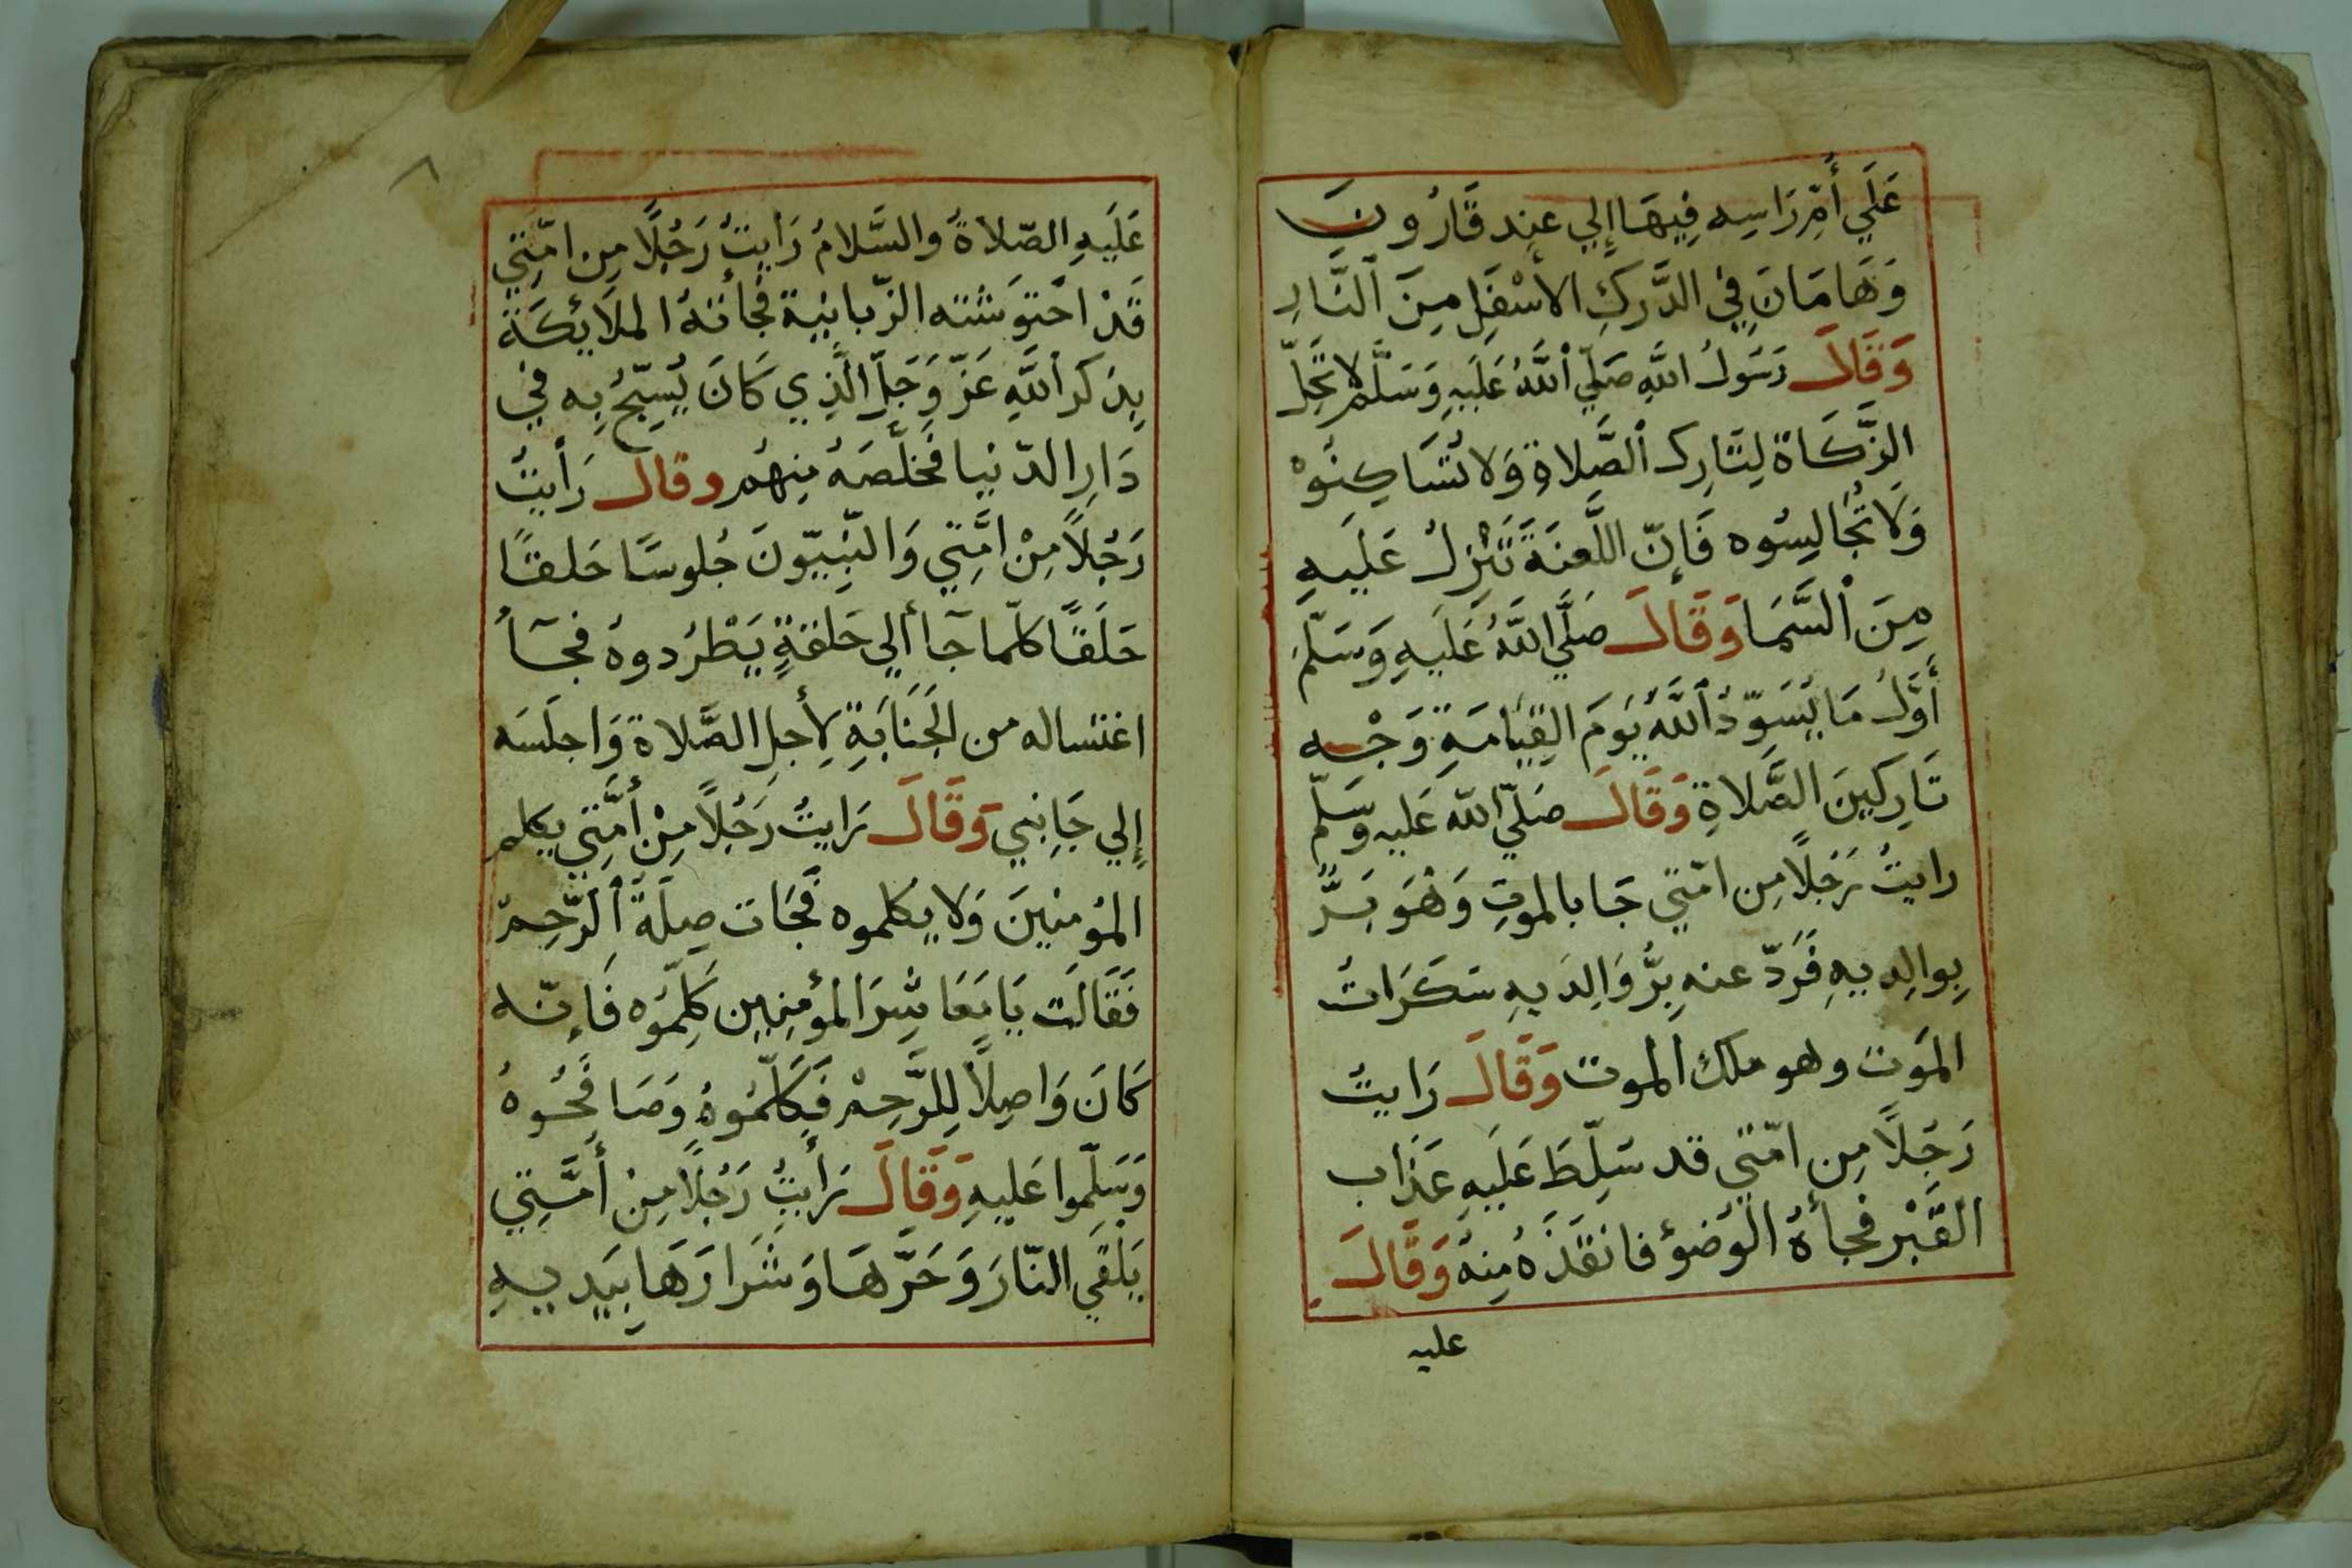 عَلَي أُمِّ رَاسِه فِيهَا إِلي عِند قَارُونَ
وَهَامَانَ فِي الدَّركِ الأسْفَلِ مِنَ النَّارِ
وَقَالَ رَسُولُ اللَّهِ صَلَّي اللَّهُ عَلَيهِ وَسَلَّم لَا تَحِلّ
الزَّكَاةَ لِتَارِك الصَّلاةِ وَلا تُسَاكِنُوْ
وَلَا تُجَالِسُوه فَإِنّ اللَّعنَةَ تَنْزِلُ عَلَيهِ
مِنَ السَّمَا وَقَالَ صَلَّي اللَّهُ عَلَيهِ وَسَلَّمَ
أَوَّلُ مَا يُسَوِّدُ اللَّهُ يَومَ القِيَامَةِ وَجْه
تَارِكِينَ الصَّلاةِ وَقَالَ صَلّي اللّه عَليه وسَلّم
رايتُ رَجُلًا مِن امّتي جَا بالموتِ وَهُوَ بَرًّ
بِوالِديهِ فَرَدّ عنه بِرُّ وَالِدَيهِ سَكَرَاتُ
المَوت وهو ملك الموت وَقَالَ رَايتُ
رَجُلًا مِن امّتي قد سَلِّطَ عَلَيهِ عَذَاب
القَبْر فجأهُ الوُضوُ فانقَذَهُ مِنهُ وَقَالَ
عليه
عَلَيهِ الصّلاةُ والسَّلامُ رَايتُ رَجُلًا مِن امّتِي
قَدْ احْتَوَشَته الزّبانِية فَجَأتهُ الملَايُكَة
بِذكر اللَّهِ عَزّ وَجَلّ الَّذِي كَانَ يُسَبّحُ بِه في
دَارِ الدّنيا فَخَلَّصَهُ مِنهُم وقال رَأيتُ
رَجُلًا مِنْ امَّتِي وَالنّبِيّونَ جُلوسًا حَلقًا
حَلَقًا كلّما جَآ ألي حَلقةٍ يَطْرُدوهُ فجَآءُ
اغتساله من الجَنَابَةِ لأِجلِ الصَّلاة وَاجلَسَه
إِلي جَانِبي وَقَالَ رَايتُ رَجُلًا مِنْ أمَّتِي يكلم
المُومِنِينَ وَلا يكلموه فَجَات صِلَةُ الرَّحِم
فَقَالَت يَا مَعَاشِرَ المؤمِنِين كَلِّمُوه فَإِنّه
كَانَ وَاصِلًا لِلرَّحِمْ فَكَلّمُوهُ وَصَافَحُوهُ
وَسَلِّموا عَليهِ وَقَالَ رَأيتُ رَجُلًا مِنْ أمَّتِي
يَلقي النّارَ وَحَرَّهَا وَشَرَارَهَا بِيَديهِ